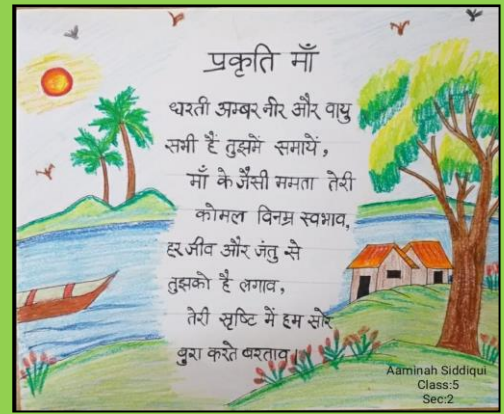 प्रकृति माँ
धरती अम्बर नीर और वायु
सभी हैं तुझमें समायें,
माँ के जैसी ममता तेरी
कोमल विनम्र स्वभाव,
हर जीव और जंतु से
तुझको है लगाव,
तेरी सृष्टि में हम सारे
बुरा करते बरताव
Aaminah Siddiqui
Class:5
Sec:2